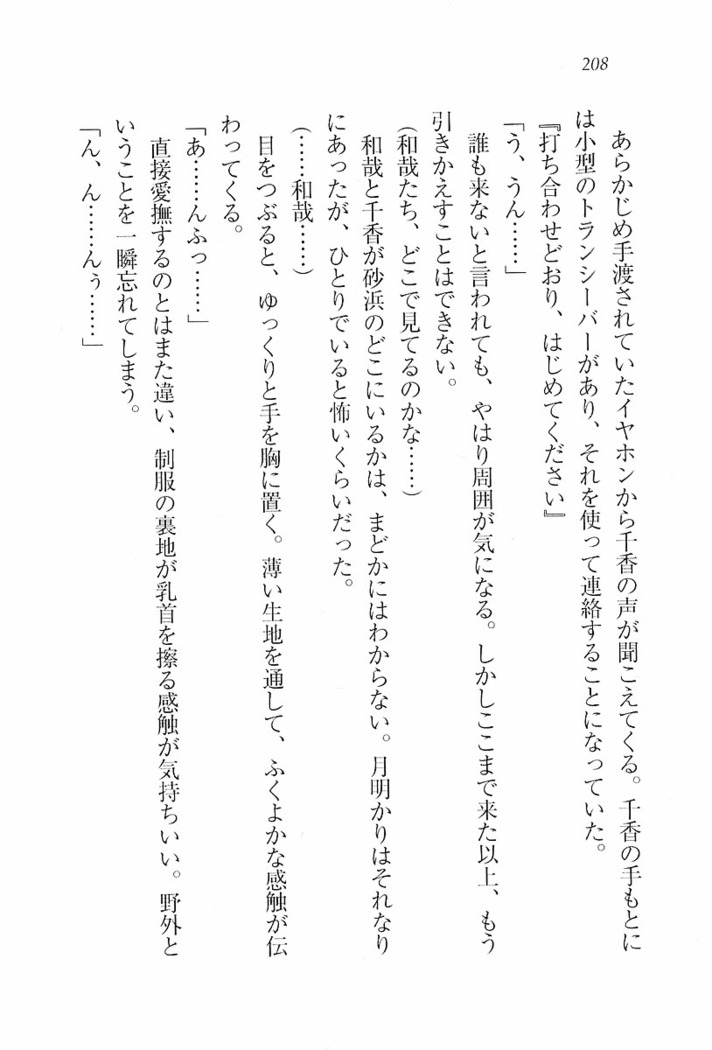 208
あらかじめ手渡されていたイヤホンから千香の声が聞こえてくる。千香の手もとに
は小型のトランシーバーがあり、それを使って連絡することになっていた。
『打ち合わせどおり、はじめてください』
「う、うん……」
誰も来ないと言われても、やはり周囲が気になる。しかしここまで来た以上、もう
引きかえすことはできない。
(和哉たち、どこで見てるのかな……)
和哉と千香が砂浜のどこにいるかは、まどかにはわからない。月明かりはそれなり
にあったが、ひとりでいると怖いくらいだった。
(……和哉……)
目をつぶると、ゆっくりと手を胸に置く。薄い生地を通して、ふくよかな感触が伝
わってくる。
「あ……んふっ……」
直接愛撫するのとはまた違い、制服の裏地が乳首を擦る感触が気持ちいい。野外と
いうことを一瞬忘れてしまう。
「ん、ん……んぅ……」